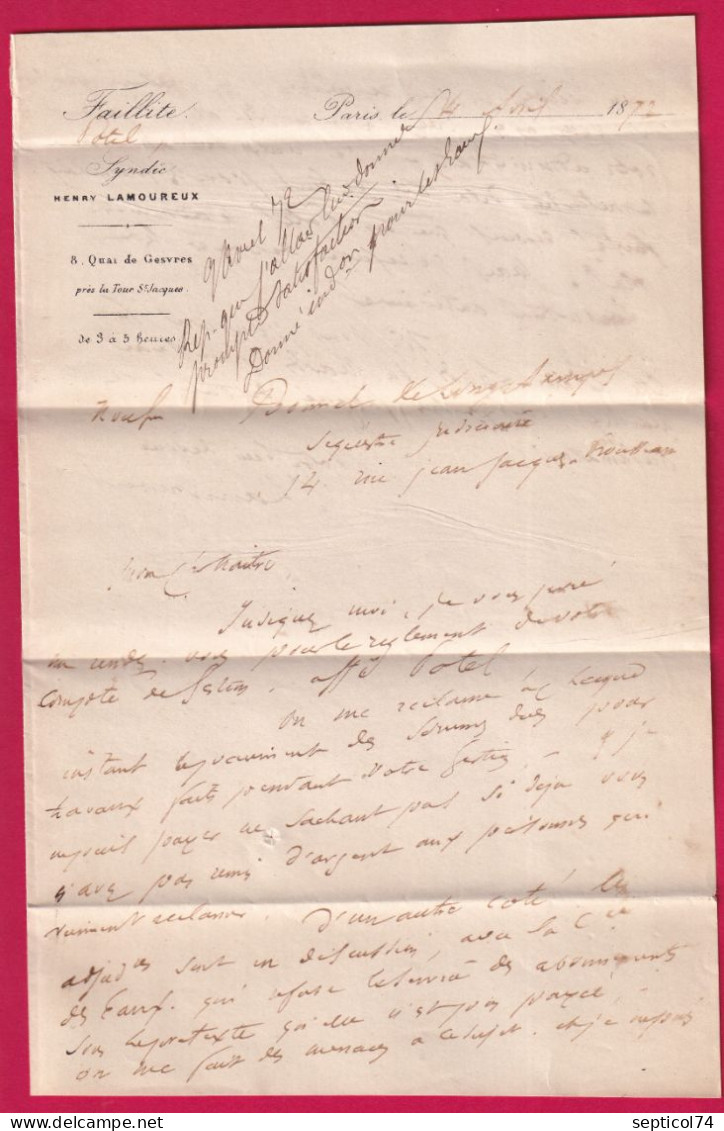 Faillite.
Potel
Syndic
HENRY LAMOUREUX
8, Quai de Gesvres
près la Tour St Jacques.
de 3 à 5 heures
Paris, le 4 Avril 1872
9 Avril 72
Rep. que j'allais lui donner
prompte satisfaction
Donné rendon pour les Eaux
Monsieur de Longchamps
Séquestre judiciaire
14 rue Jean Jacques Rousseau
Mon Cher Maitre,
Indiquez moi, je vous prie
un rendez-vous pour le règlement de votre
compte de Gestion. affre Potel
On me réclame à chaque
instant le paiement des sommes dues pour
travaux faits pendant votre Gestion, - & je
ne puis payer ne sachant pas si déjà vous
n'avez pas remis d'argent aux personnes qui
viennent réclamer. D'un autre coté les
adjres sont en discussion, avec la Cie
des Eaux. qui refuse le service des abonnements
sous le prétexte qu'elle n'est pas payée, -
on me fait des menaces à ce sujet. et je